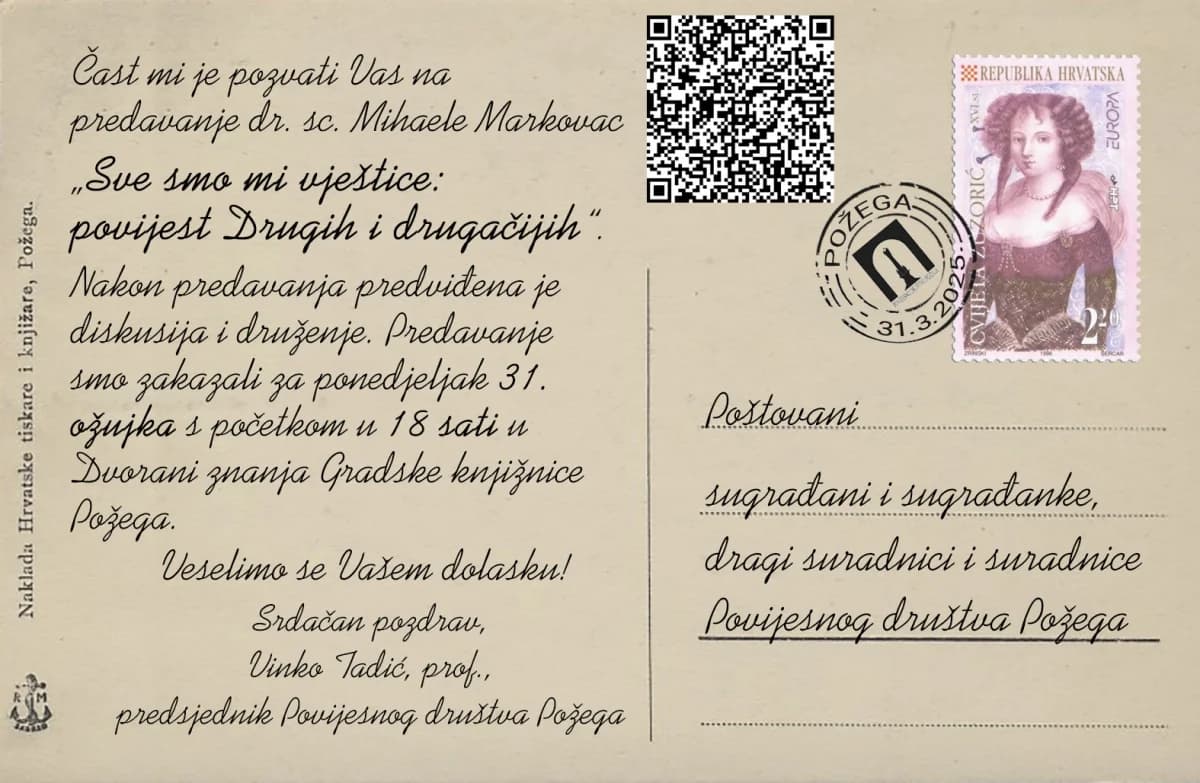 Čast mi je pozvati Vas na
predavanje dr. sc. Mihaele Markovac
„Sve smo mi vještice:
povijest Drugih i drugačijih“.
Nakon predavanja predviđena je
diskusija i druženje. Predavanje
smo zakazali za ponedjeljak 31.
ožujka s početkom u 18 sati u
Dvorani znanja Gradske knjižnice
Požega.
Veselimo se Vašem dolasku!
Srdačan pozdrav,
Vinko Tadić, prof.,
predsjednik Povijesnog društva Požega
Naklada Hrvatske tiskare i knjižare, Požega.
R M
POŽEGA
31.3.2025.
REPUBLIKA HRVATSKA
EUROPA
CVIJETA ZUZORIĆ
XVI.st.
2.20
ZRINSKI
1996
ŠERCAR
Poštovani
sugrađani i sugrađanke,
dragi suradnici i suradnice
Povijesnog društva Požega